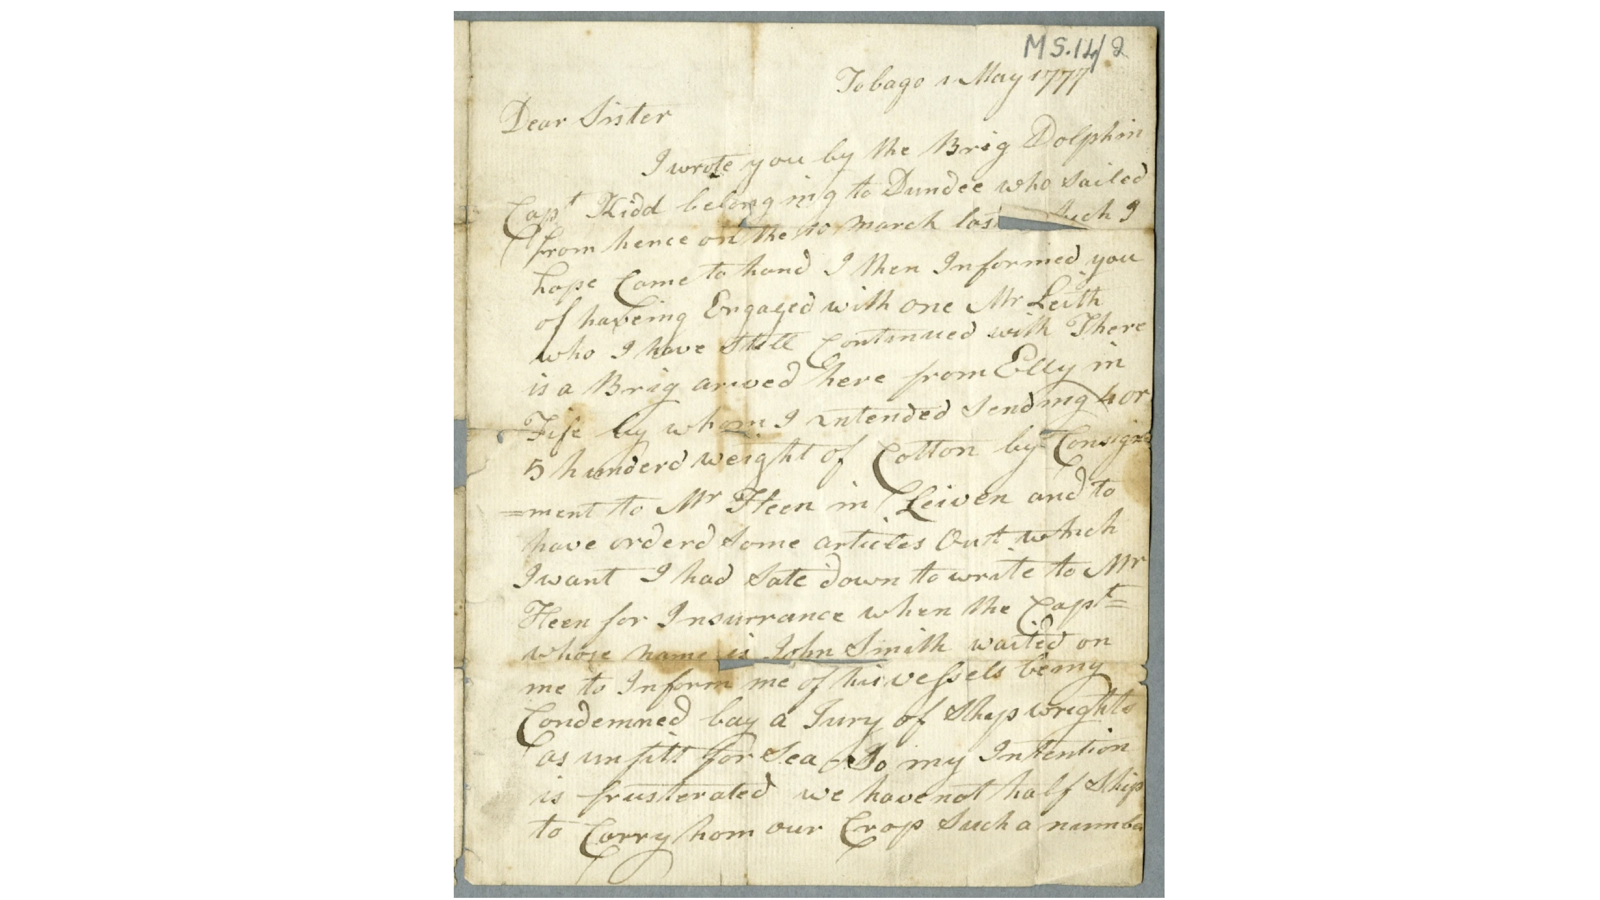 MS.14/2
Tobago 1 May 1777
Dear Sister
I wrote you by the Brig Dolphin
Capt Kidd belonging to Dundee who sailed
from hence on the 10 March last which I
hope Came to hand I then Informed you
of haveing Engaged with one Mr Leith
who I have Still Continued with There
is a Brig arived here from Elly in
Fife by whom I intended Sending 4 or
5 hunderd weight of Cotton by Consign=
=ment to Mr Steen in Leiven and to
have orderd Some articles Out which
I want I had Sate down to write to Mr
Steen for Insurrance when the Capt=
whose name is John Smith waited on
me to Inform me of his vessels being
Condemned bay a Jury of Ship wrights
as unfitt for Sea So my Intention
is frusterated we have not half Ship
to Carry hom our Crop Such a numbe